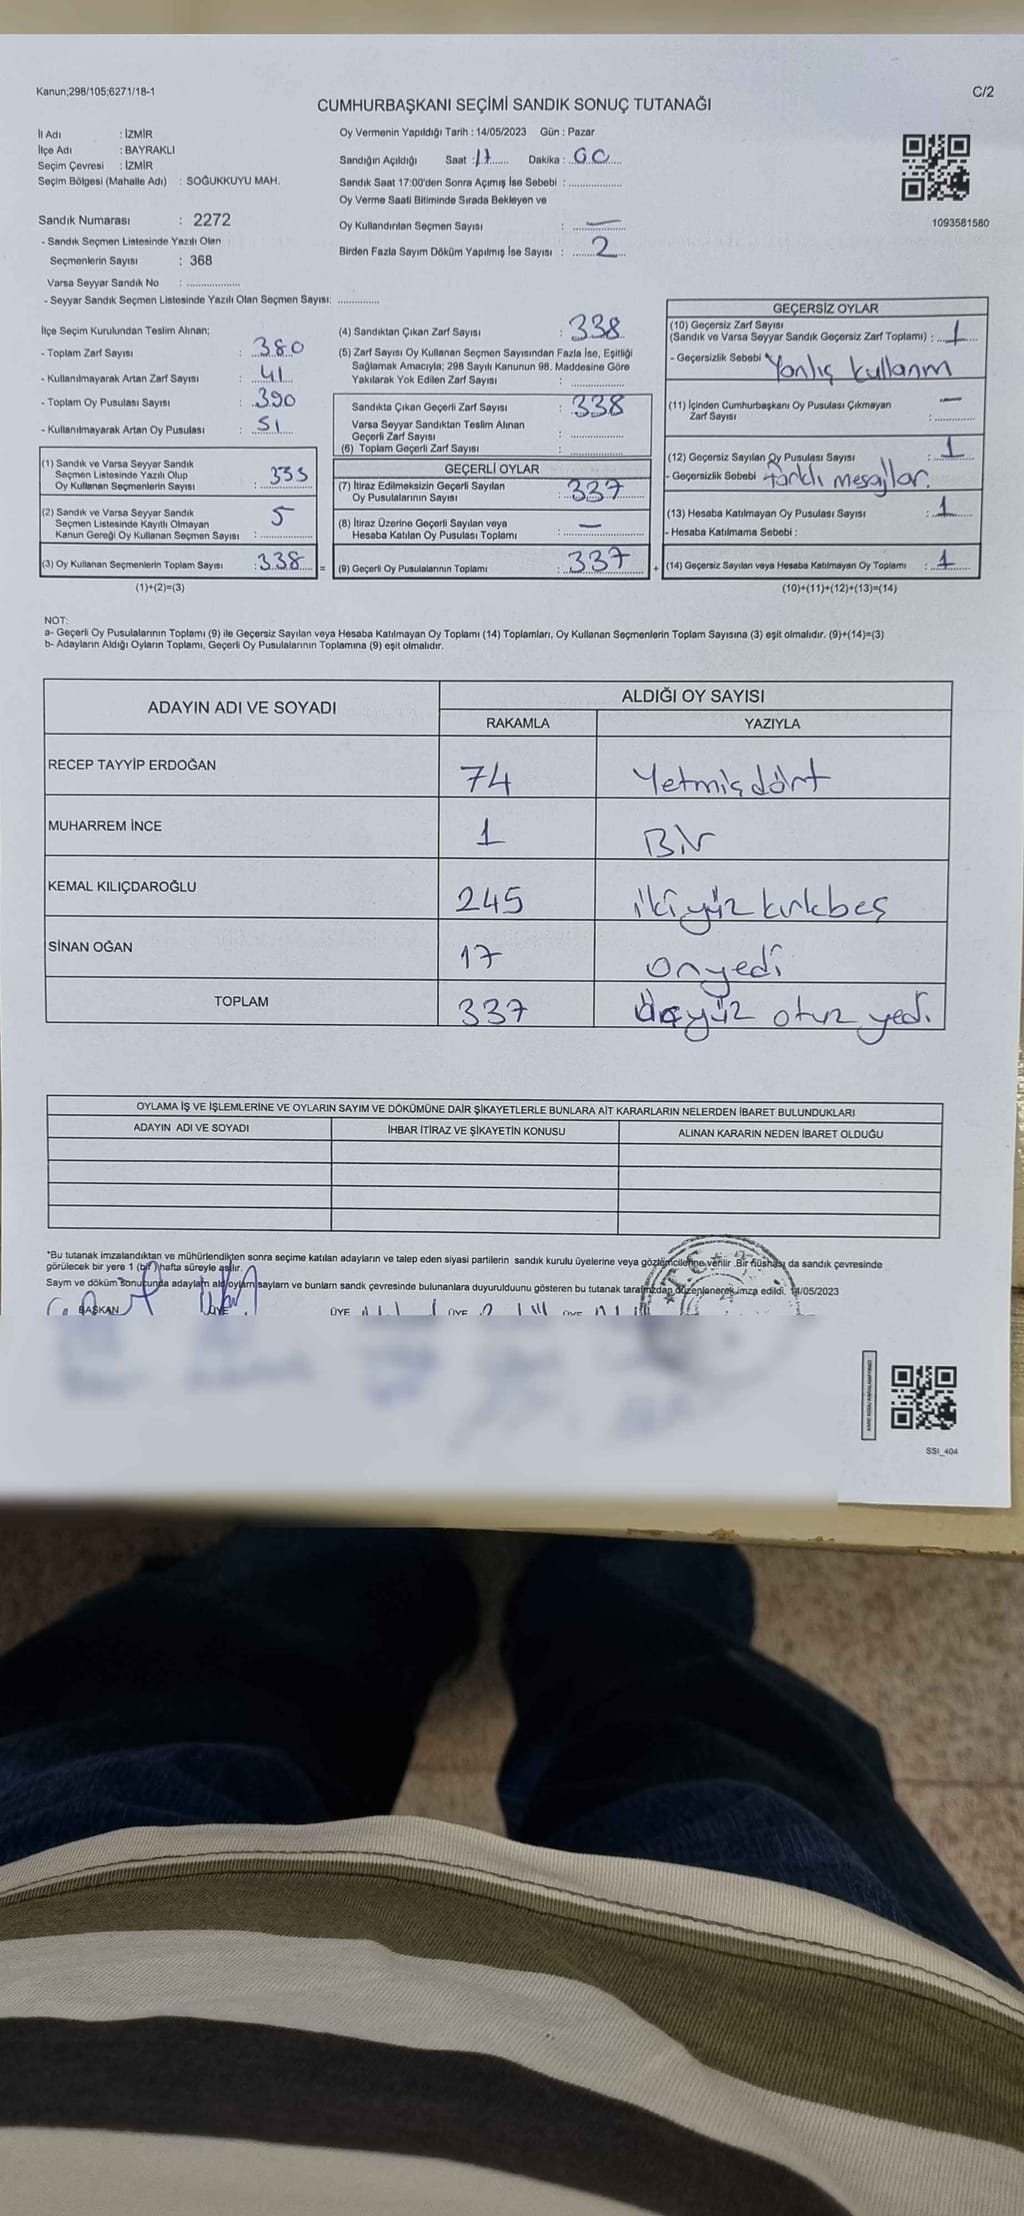 Kanun;298/105;6271/18-1
C/2
CUMHURBAŞKANI SEÇİMİ SANDIK SONUÇ TUTANAĞI
İl Adı : İZMİR
İlçe Adı : BAYRAKLI
Seçim Çevresi : İZMİR
Seçim Bölgesi (Mahalle Adı) : SOĞUKKUYU MAH.
Oy Vermenin Yapıldığı Tarih : 14/05/2023 Gün : Pazar
Sandığın Açıldığı Saat : 17 Dakika : 00
Sandık Saat 17:00'den Sonra Açımış İse Sebebi :
Oy Verme Saati Bitiminde Sırada Bekleyen ve
Oy Kullandırılan Seçmen Sayısı : —
Birden Fazla Sayım Döküm Yapılmış İse Sayısı : 2
1093581580
Sandık Numarası : 2272
- Sandık Seçmen Listesinde Yazılı Olan
Seçmenlerin Sayısı : 368
Varsa Seyyar Sandık No :
- Seyyar Sandık Seçmen Listesinde Yazılı Olan Seçmen Sayısı:
İlçe Seçim Kurulundan Teslim Alınan;
- Toplam Zarf Sayısı : 380
- Kullanılmayarak Artan Zarf Sayısı : 41
- Toplam Oy Pusulası Sayısı : 390
- Kullanılmayarak Artan Oy Pusulası : 51
(1) Sandık ve Varsa Seyyar Sandık
Seçmen Listesinde Yazılı Olup
Oy Kullanan Seçmenlerin Sayısı : 333
(2) Sandık ve Varsa Seyyar Sandık
Seçmen Listesinde Kayıtlı Olmayan
Kanun Gereği Oy Kullanan Seçmen Sayısı : 5
(3) Oy Kullanan Seçmenlerin Toplam Sayısı : 338 =
(1)+(2)=(3)
(4) Sandıktan Çıkan Zarf Sayısı : 338
(5) Zarf Sayısı Oy Kullanan Seçmen Sayısından Fazla İse, Eşitliği
Sağlamak Amacıyla; 298 Sayılı Kanunun 98. Maddesine Göre
Yakılarak Yok Edilen Zarf Sayısı :
Sandıkta Çıkan Geçerli Zarf Sayısı : 338
Varsa Seyyar Sandıktan Teslim Alınan
Geçerli Zarf Sayısı :
(6) Toplam Geçerli Zarf Sayısı :
GEÇERLİ OYLAR
(7) İtiraz Edilmeksizin Geçerli Sayılan
Oy Pusulalarının Sayısı : 337
(8) İtiraz Üzerine Geçerli Sayılan veya
Hesaba Katılan Oy Pusulası Toplamı : —
(9) Geçerli Oy Pusulalarının Toplamı : 337 +
GEÇERSİZ OYLAR
(10) Geçersiz Zarf Sayısı
(Sandık ve Varsa Seyyar Sandık Geçersiz Zarf Toplamı) : 1
- Geçersizlik Sebebi : Yanlış kullanım
(11) İçinden Cumhurbaşkanı Oy Pusulası Çıkmayan
Zarf Sayısı : —
(12) Geçersiz Sayılan Oy Pusulası Sayısı : 1
- Geçersizlik Sebebi : farklı mesajlar.
(13) Hesaba Katılmayan Oy Pusulası Sayısı : 1
- Hesaba Katılmama Sebebi :
(14) Geçersiz Sayılan veya Hesaba Katılmayan Oy Toplamı : 1
(10)+(11)+(12)+(13)=(14)
NOT:
a- Geçerli Oy Pusulalarının Toplamı (9) ile Geçersiz Sayılan veya Hesaba Katılmayan Oy Toplamı (14) Toplamları, Oy Kullanan Seçmenlerin Toplam Sayısına (3) eşit olmalıdır. (9)+(14)=(3)
b- Adayların Aldığı Oyların Toplamı, Geçerli Oy Pusulalarının Toplamına (9) eşit olmalıdır.
ADAYIN ADI VE SOYADI
ALDIĞI OY SAYISI
RAKAMLA YAZIYLA
RECEP TAYYİP ERDOĞAN 74 Yetmişdört
MUHARREM İNCE 1 Bir
KEMAL KILIÇDAROĞLU 245 ikiyüz kırkbeş
SİNAN OĞAN 17 onyedi
TOPLAM 337 Üçyüz otuz yedi.
OYLAMA İŞ VE İŞLEMLERİNE VE OYLARIN SAYIM VE DÖKÜMÜNE DAİR ŞİKAYETLERLE BUNLARA AİT KARARLARIN NELERDEN İBARET BULUNDUKLARI
ADAYIN ADI VE SOYADI İHBAR İTİRAZ VE ŞİKAYETİN KONUSU ALINAN KARARIN NEDEN İBARET OLDUĞU
*Bu tutanak imzalandıktan ve mühürlendikten sonra seçime katılan adayların ve talep eden siyasi partilerin sandık kurulu üyelerine veya gözlemcilerine verilir .Bir nüshası da sandık çevresinde
görülecek bir yere 1 (bir) hafta süreyle asılır.
Sayım ve döküm sonucunda adayların aldıı oyların saylarn ve bunlarn sandk çevresinde bulunanlara duyurulduunu gösteren bu tutanak tarafmzdan düzenlenerek imza edildi. 14/05/2023
BAŞKAN ÜYE ÜYE ÜYE ÜYE
SSI_404